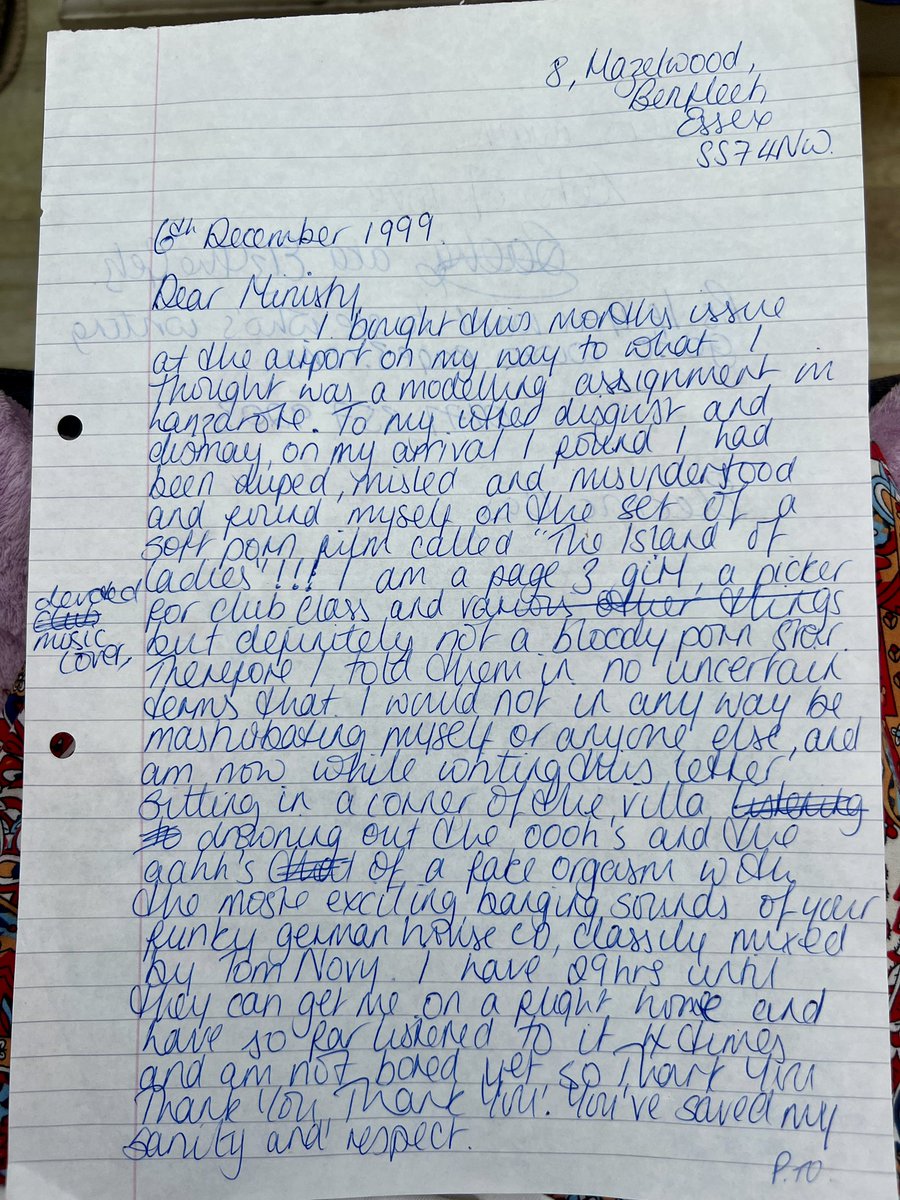 8, Hazelwood,
Benfleet
Essex
SS7 4NW.
6th December 1999.
Dear Ministry,
I bought this months issue
at the airport on my way to what I
thought was a modelling assignment in
Lanzarote. To my utter disgust and
dismay, on my arrival I found I had
been duped, misled and misunderstood
and found myself on the set of a
soft porn film called "The Island of
Ladies"!!! I am a page 3 girl, a picker
for club class and various other things
devoted
club
music
lover,
but definitely not a bloody porn star.
Therefore I told them in no uncertain
terms that I would not in any way be
mastrobating myself or anyone else, and
am now while writing this letter,
sitting in a corner of the villa listening
to drowning out the oooh's and the
aahh's that of a fake orgasm with
the more exciting, banging sounds of your
funky german house CD, classily mixed
by Tom Novy. I have 29hrs until
they can get me on a flight home and
have so far listened to it 7x times
and am not bored yet so Thank You
Thank You, Thank You! You've saved my
sanity and respect.
P.TO.